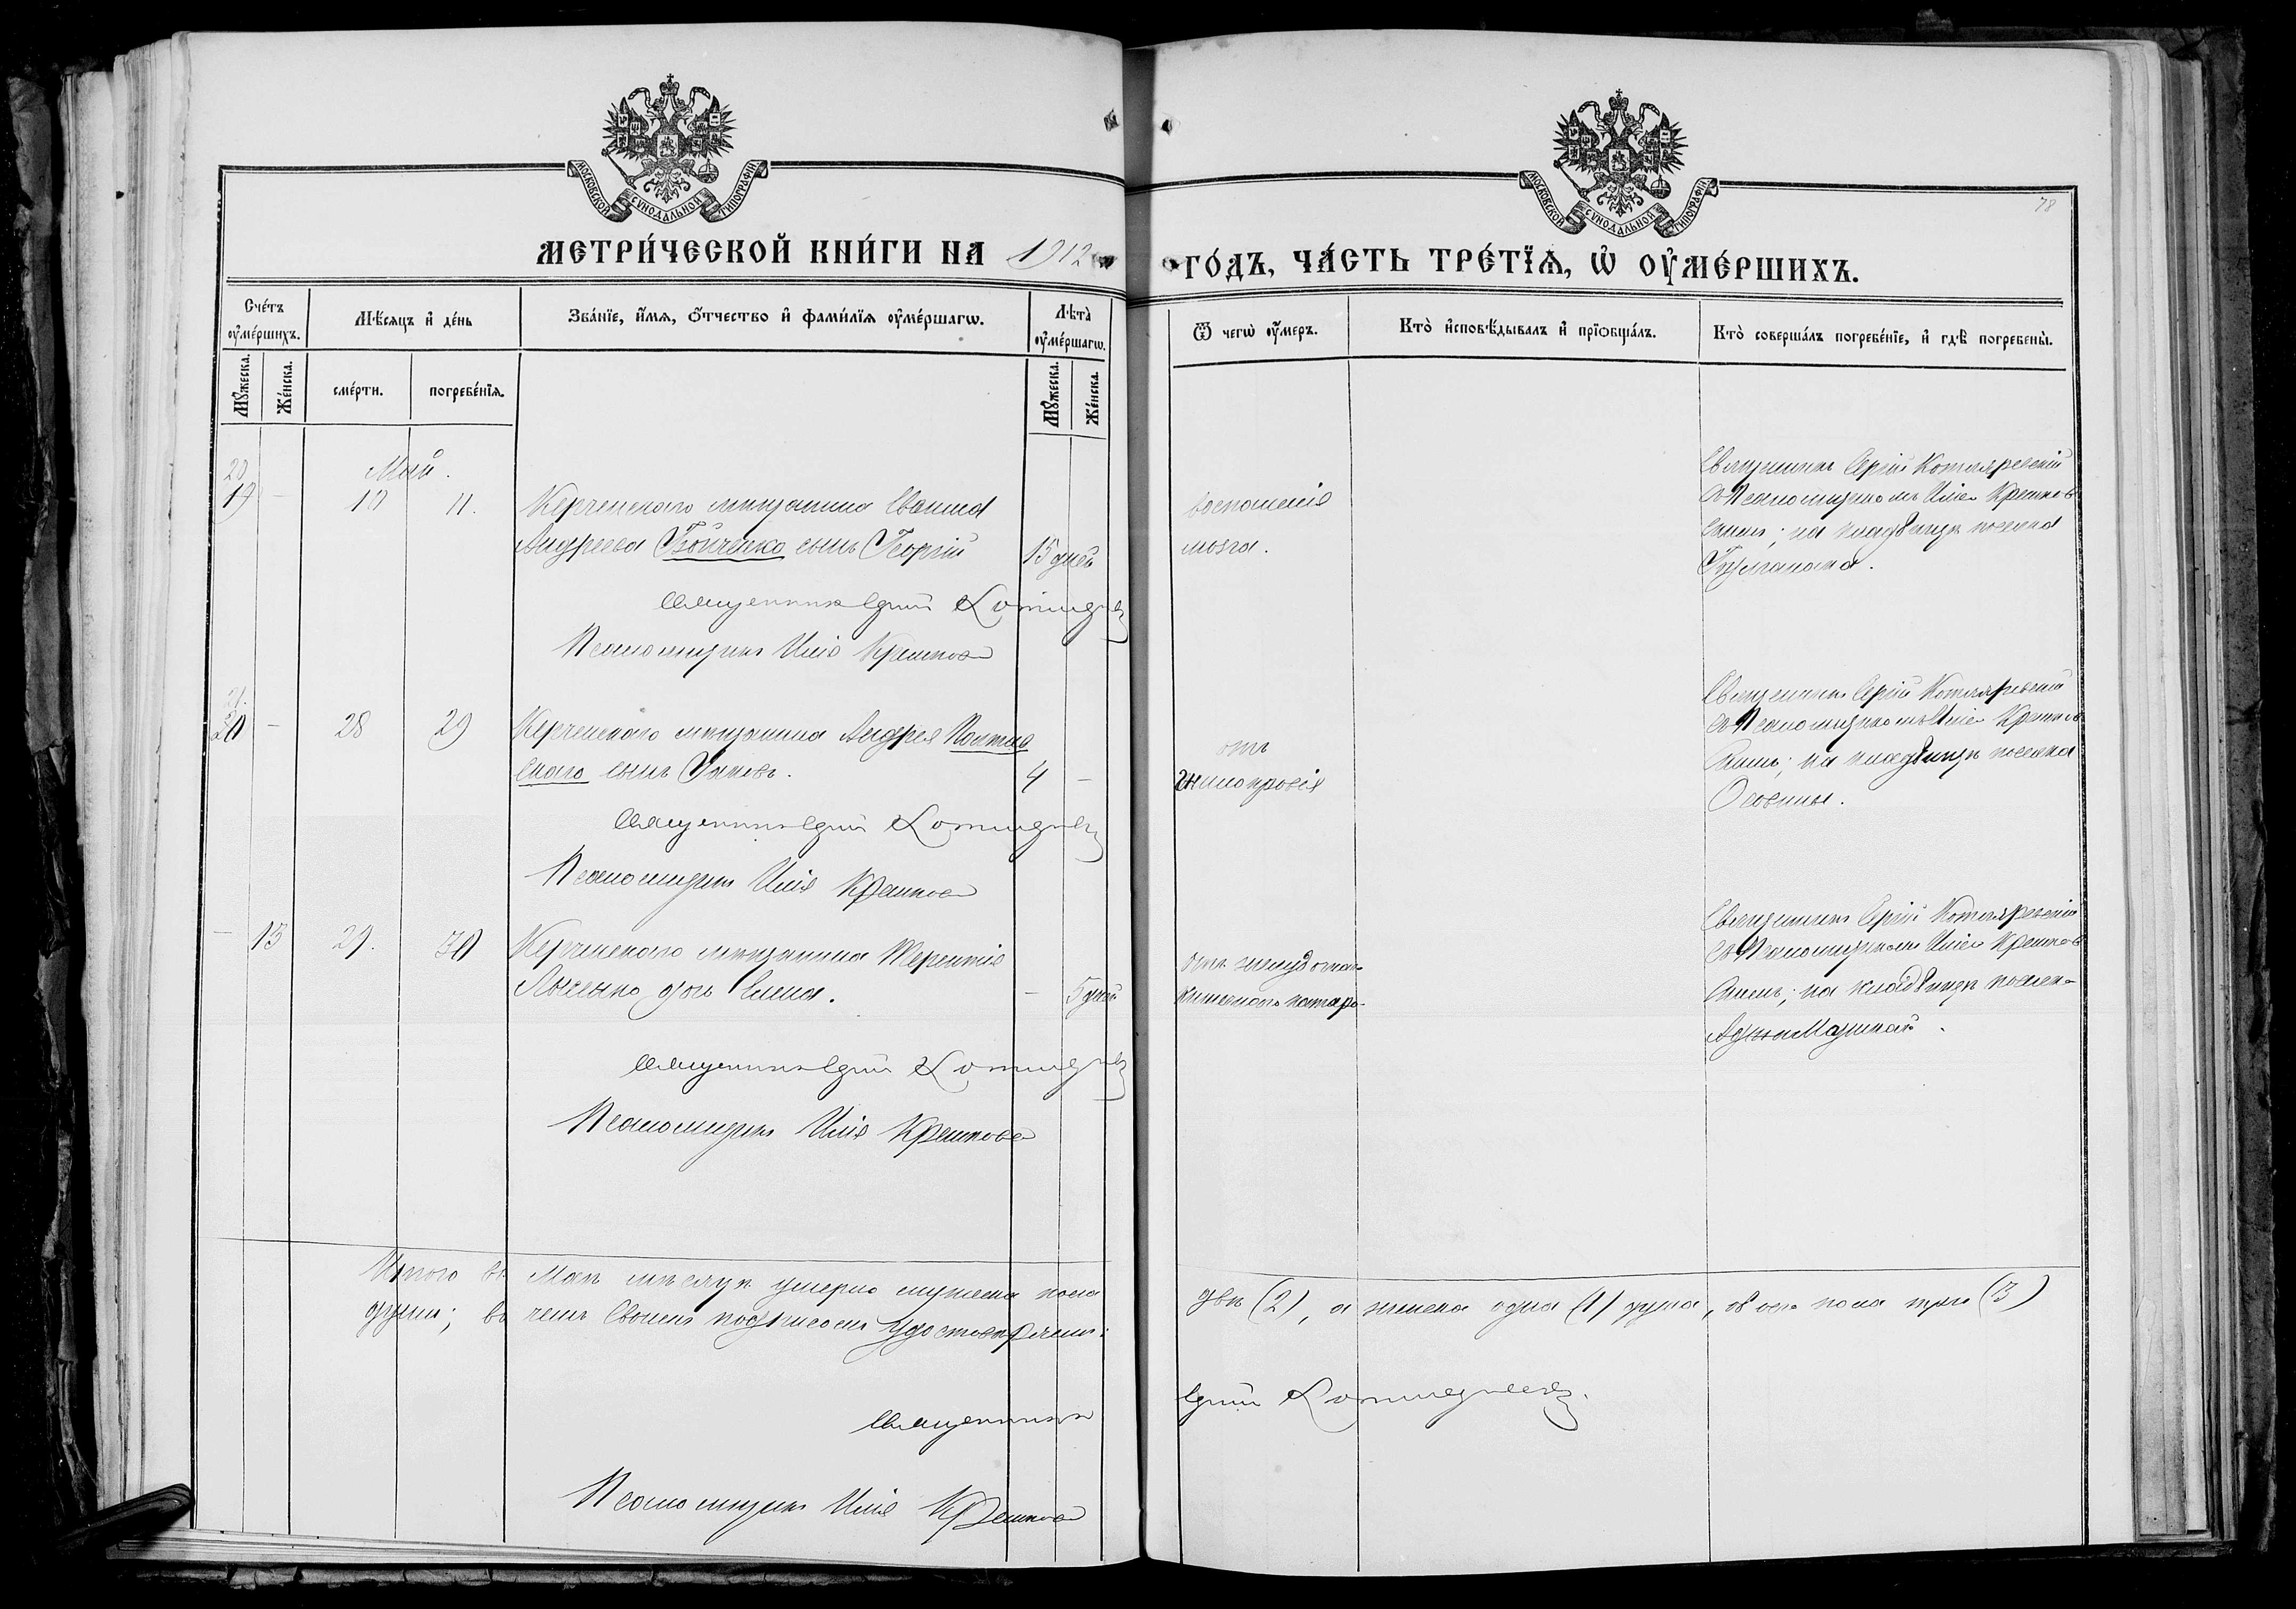 МОСКОВСКОЙ СУНОДАЛЬНОЙ ТИПОГРАФІИ.
МОСКОВСКОЙ СУНОДАЛЬНОЙ ТИПОГРАФІИ.
78
МЕТРИ́ЧЕСКОЙ КНИ́ГИ НА 1912
ГО́ДЪ, ЧА́СТЬ ТРЕ́ТЇѦ, Ѡ҆ ОУ҆МЕ́РШИХЪ.
Сче́тъ оу҆ме́ршихъ.
Мꙋ́жеска.
Же́нска.
Мѣ́сѧцъ и҆ де́нь
сме́рти.
погребе́нїѧ.
Зва́нїе, и҆́мѧ, ѻ҆́тчество и҆ фами́лїѧ оу҆ме́ршагѡ.
Лѣ́та̀ оу҆ме́ршагѡ.
Мꙋ́жеска.
Же́нска.
Ѿ чегѡ̀ оу҆́меръ.
Кто̀ и҆сповѣ́дывалъ и҆ прїѻбща́лъ.
Кто̀ соверша́лъ погребе́нїе, и҆ гдѣ̀ погребены̀.
20
Май.
19 - 10 11. Керченскаго мѣщанина Іванна
Андреева Бойченко сынъ Георгій 15 дней
Священникъ Сергій Котляревскій
Псаломщикъ Илія Крашков
воспаленія
мозга.
Священникъ Сергій Котляревскій
съ Псаломщикомъ Иліею Крашков
скимъ; на кладбищѣ поселка
21.
20 - 28 29 Керченскаго мѣщанина Андрея Полтав
скаго сынъ Іаковъ. 4 -
Священникъ Сергій Котляревскій
Псаломщикъ Илія Крашков
отъ
малокровія
Священникъ Сергій Котляревскій
съ Псаломщикомъ Иліею Крашков
скимъ; на кладбищѣ поселка
Осовины.
- 13 29. 30 Керченскаго мѣщанина Терентія
дочь Елена. - 5 дней
Священникъ Сергій Котляревскій
Псаломщикъ Илія Крашков
отъ желудочно
кишечнаго катара.
Священникъ Сергій Котляревскій
съ Псаломщикомъ Иліею Крашков
скимъ; на кладбищѣ поселка
Итого въ Маѣ мѣсяцѣ умерло мужеска пола двѣ (2), а женска одна (1) душа, обоего пола три (3)
души; въ чемъ своимъ подписомъ удостовѣряемъ:
Священникъ Сергій Котляревскій.
Псаломщикъ Илія Крашков